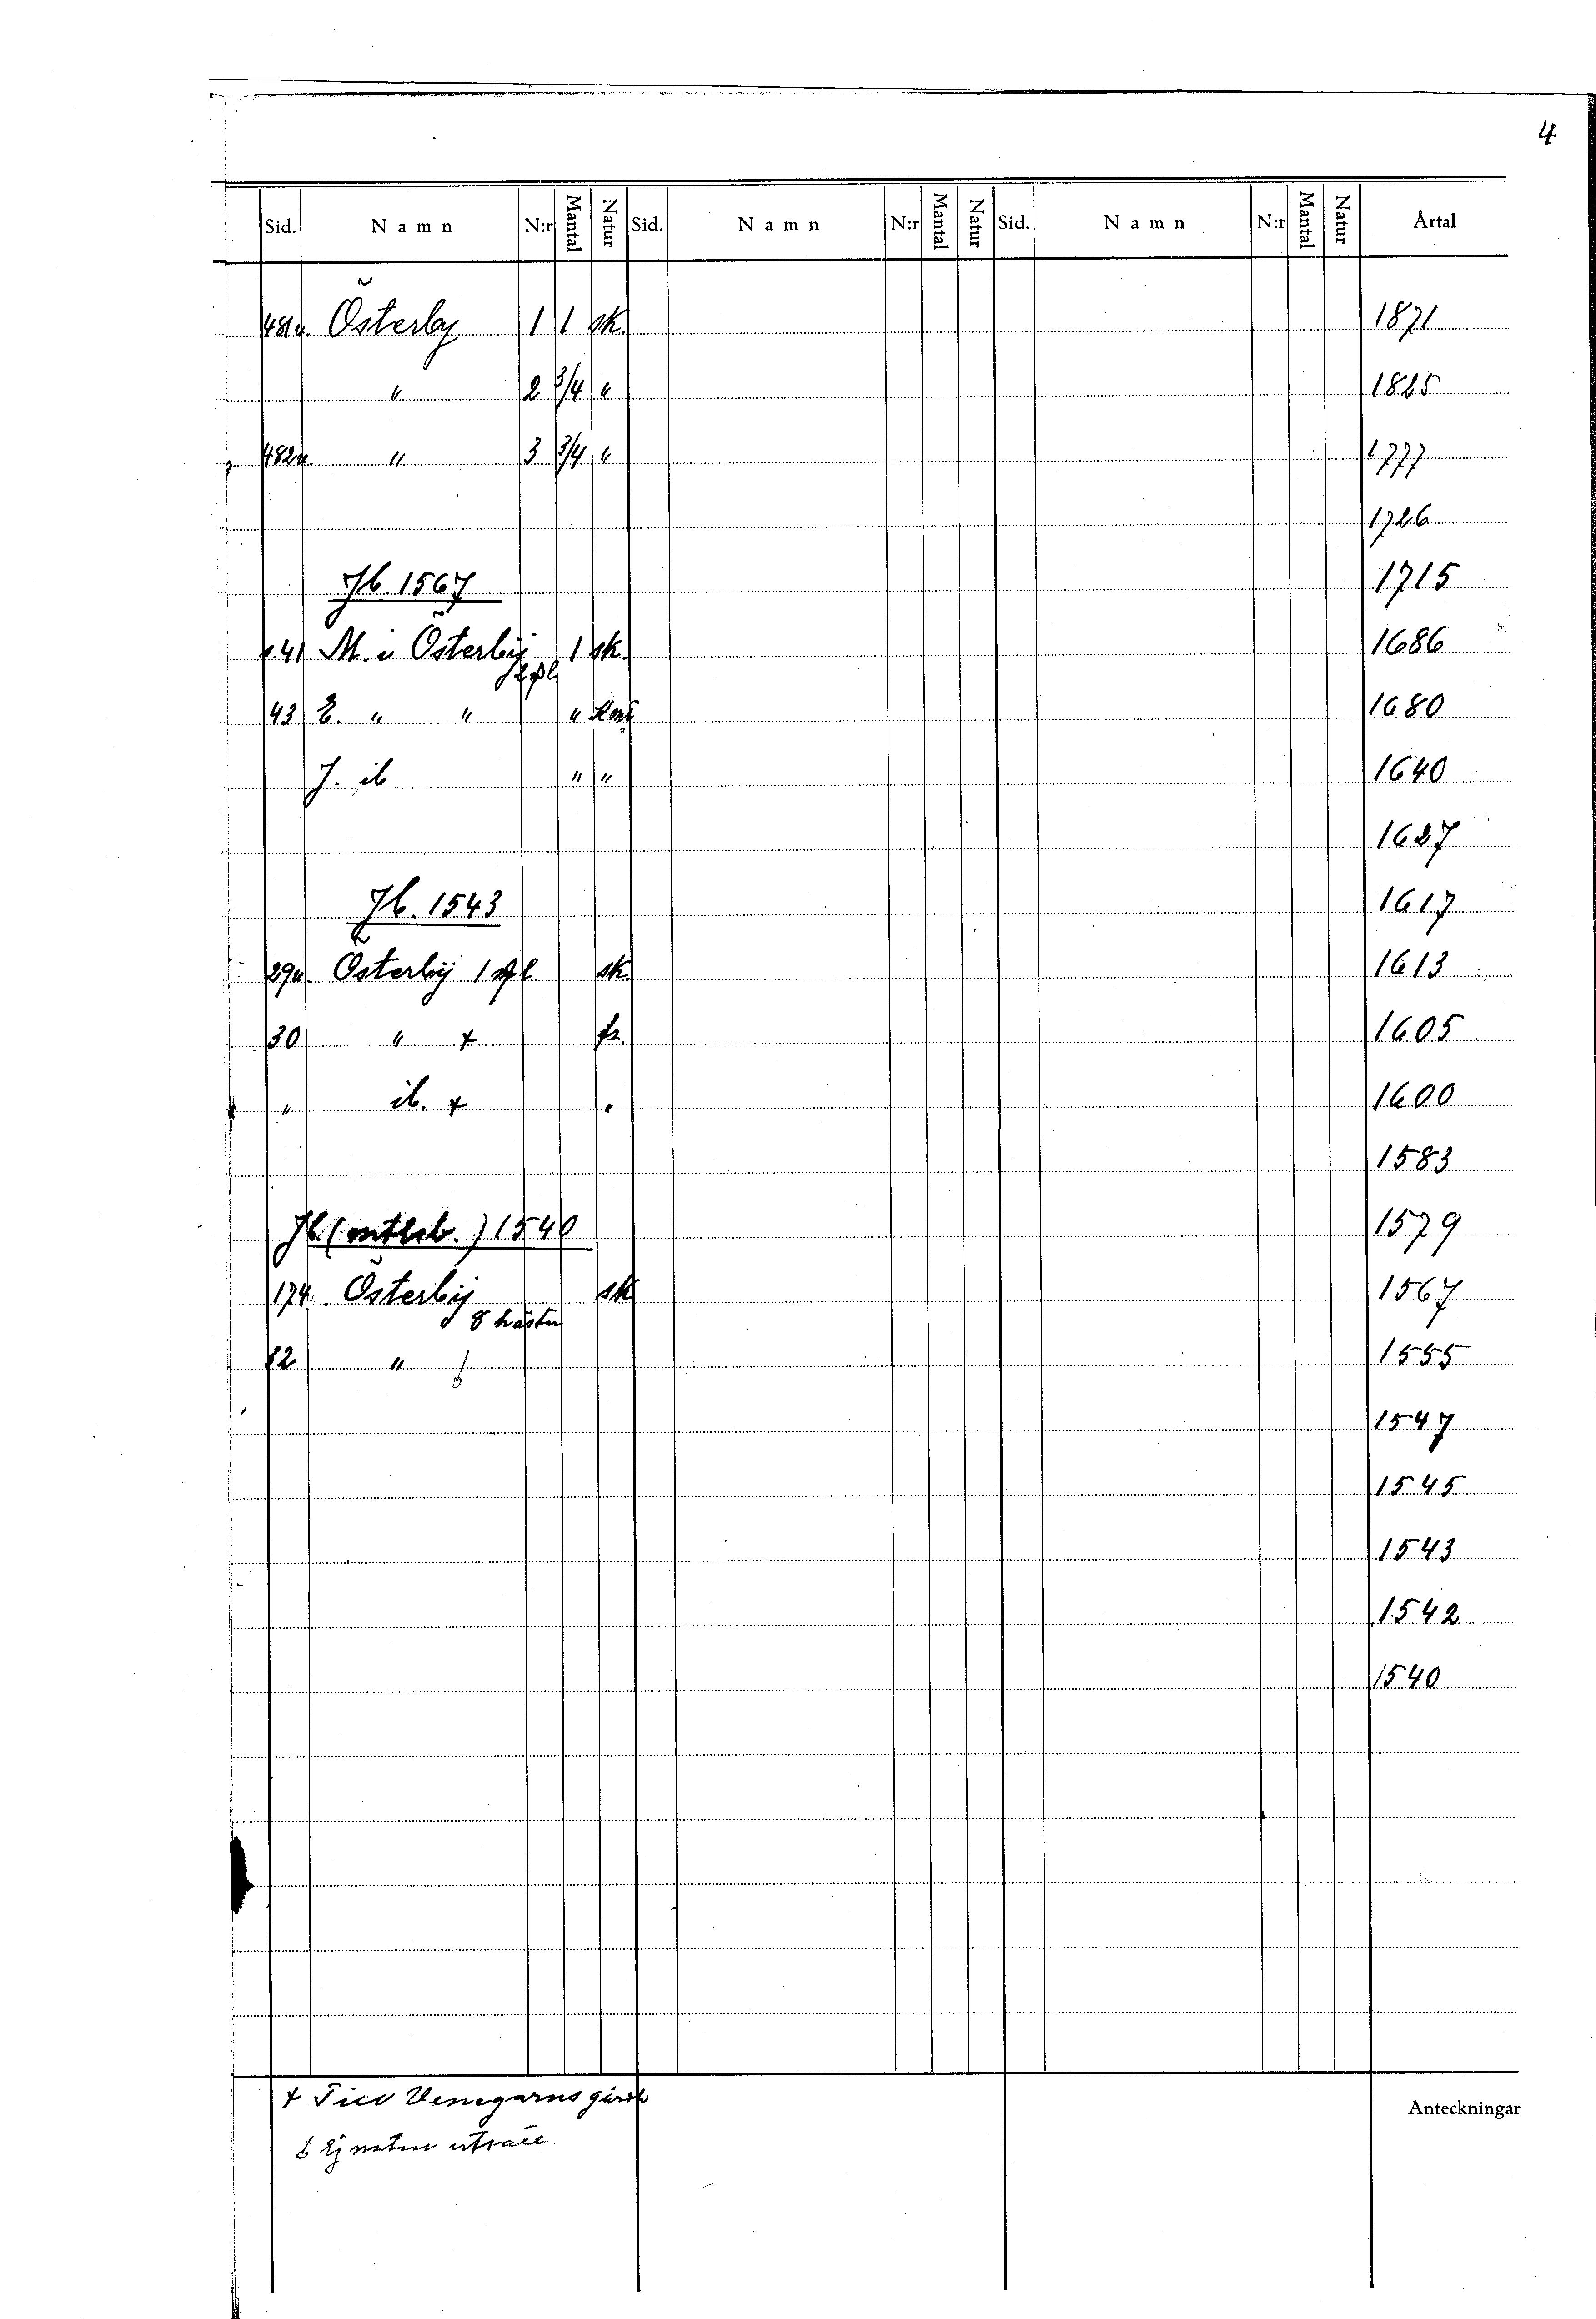 4
Sid. Namn N:r Mantal Natur Sid. Namn N:r Mantal Natur Sid. Namn N:r Mantal Natur Årtal
481u. Österby 1 1 sk. 1871
" 2 3/4 " 1825
482u. " 3 3/4 " 1777
1726
Jb. 1567 1715
s.41 M. i Österbÿ 1 sk. 1686
43 E. " " " 1680
J. ib " " 1640
1627
Jb. 1543 1617
29u. Österbÿ 1 sk. 1613
30 " + fr. 1605
" ib. + " 1600
1583
Jb. ( ) 1540 1579
174. Österbÿ sk 1567
8 hästar
82 " 1555
1547
1545
1543
1542
1540
+ Till Venegarns gård
Ej natur utsatt.
Anteckningar